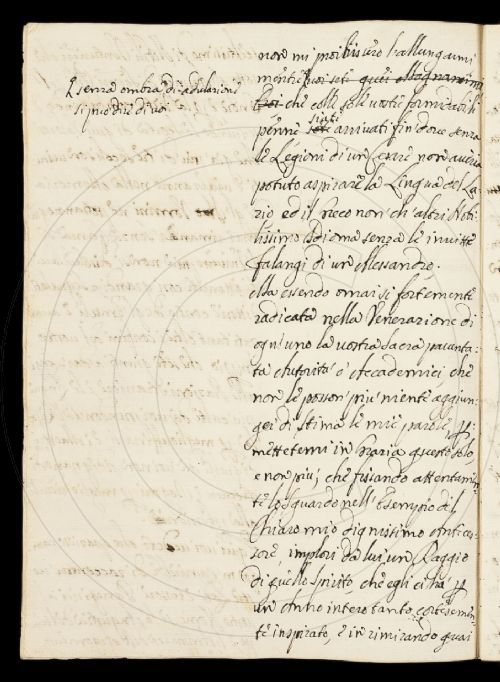 E senza ombra di adulazione
si può dir di voi
non mi proibissero hallungarmi
mentre voi seti
Voi che colle sole vostre formidabili
penne siate arrivati fin dove senza
le Legioni di un Cesare non averia
potuto aspirare la Lingua del La-
zio ed il Greco non ch'altri Nobi-
lissimo Idioma senza le invitte
falangi di un Alessandro.
Ma essendo omai si fortemente
radicata nella Venerazione di
ogn'uno la vostra sacra
ta Autorità o Accademici che
non le posson più niente aggiun-
ger di stima le mie parole,
mettetemi in grazia questo solo,
e non più, che fissando attentamen-
te lo sguardo nell'Esempio del
Chiaro mio dignissimo Anteces-
sore, implori da lui un Raggio
di quello spirito, che egli ci ha
un Anno intero tanto cortesemen-
te inspirato, e in rimirando quai